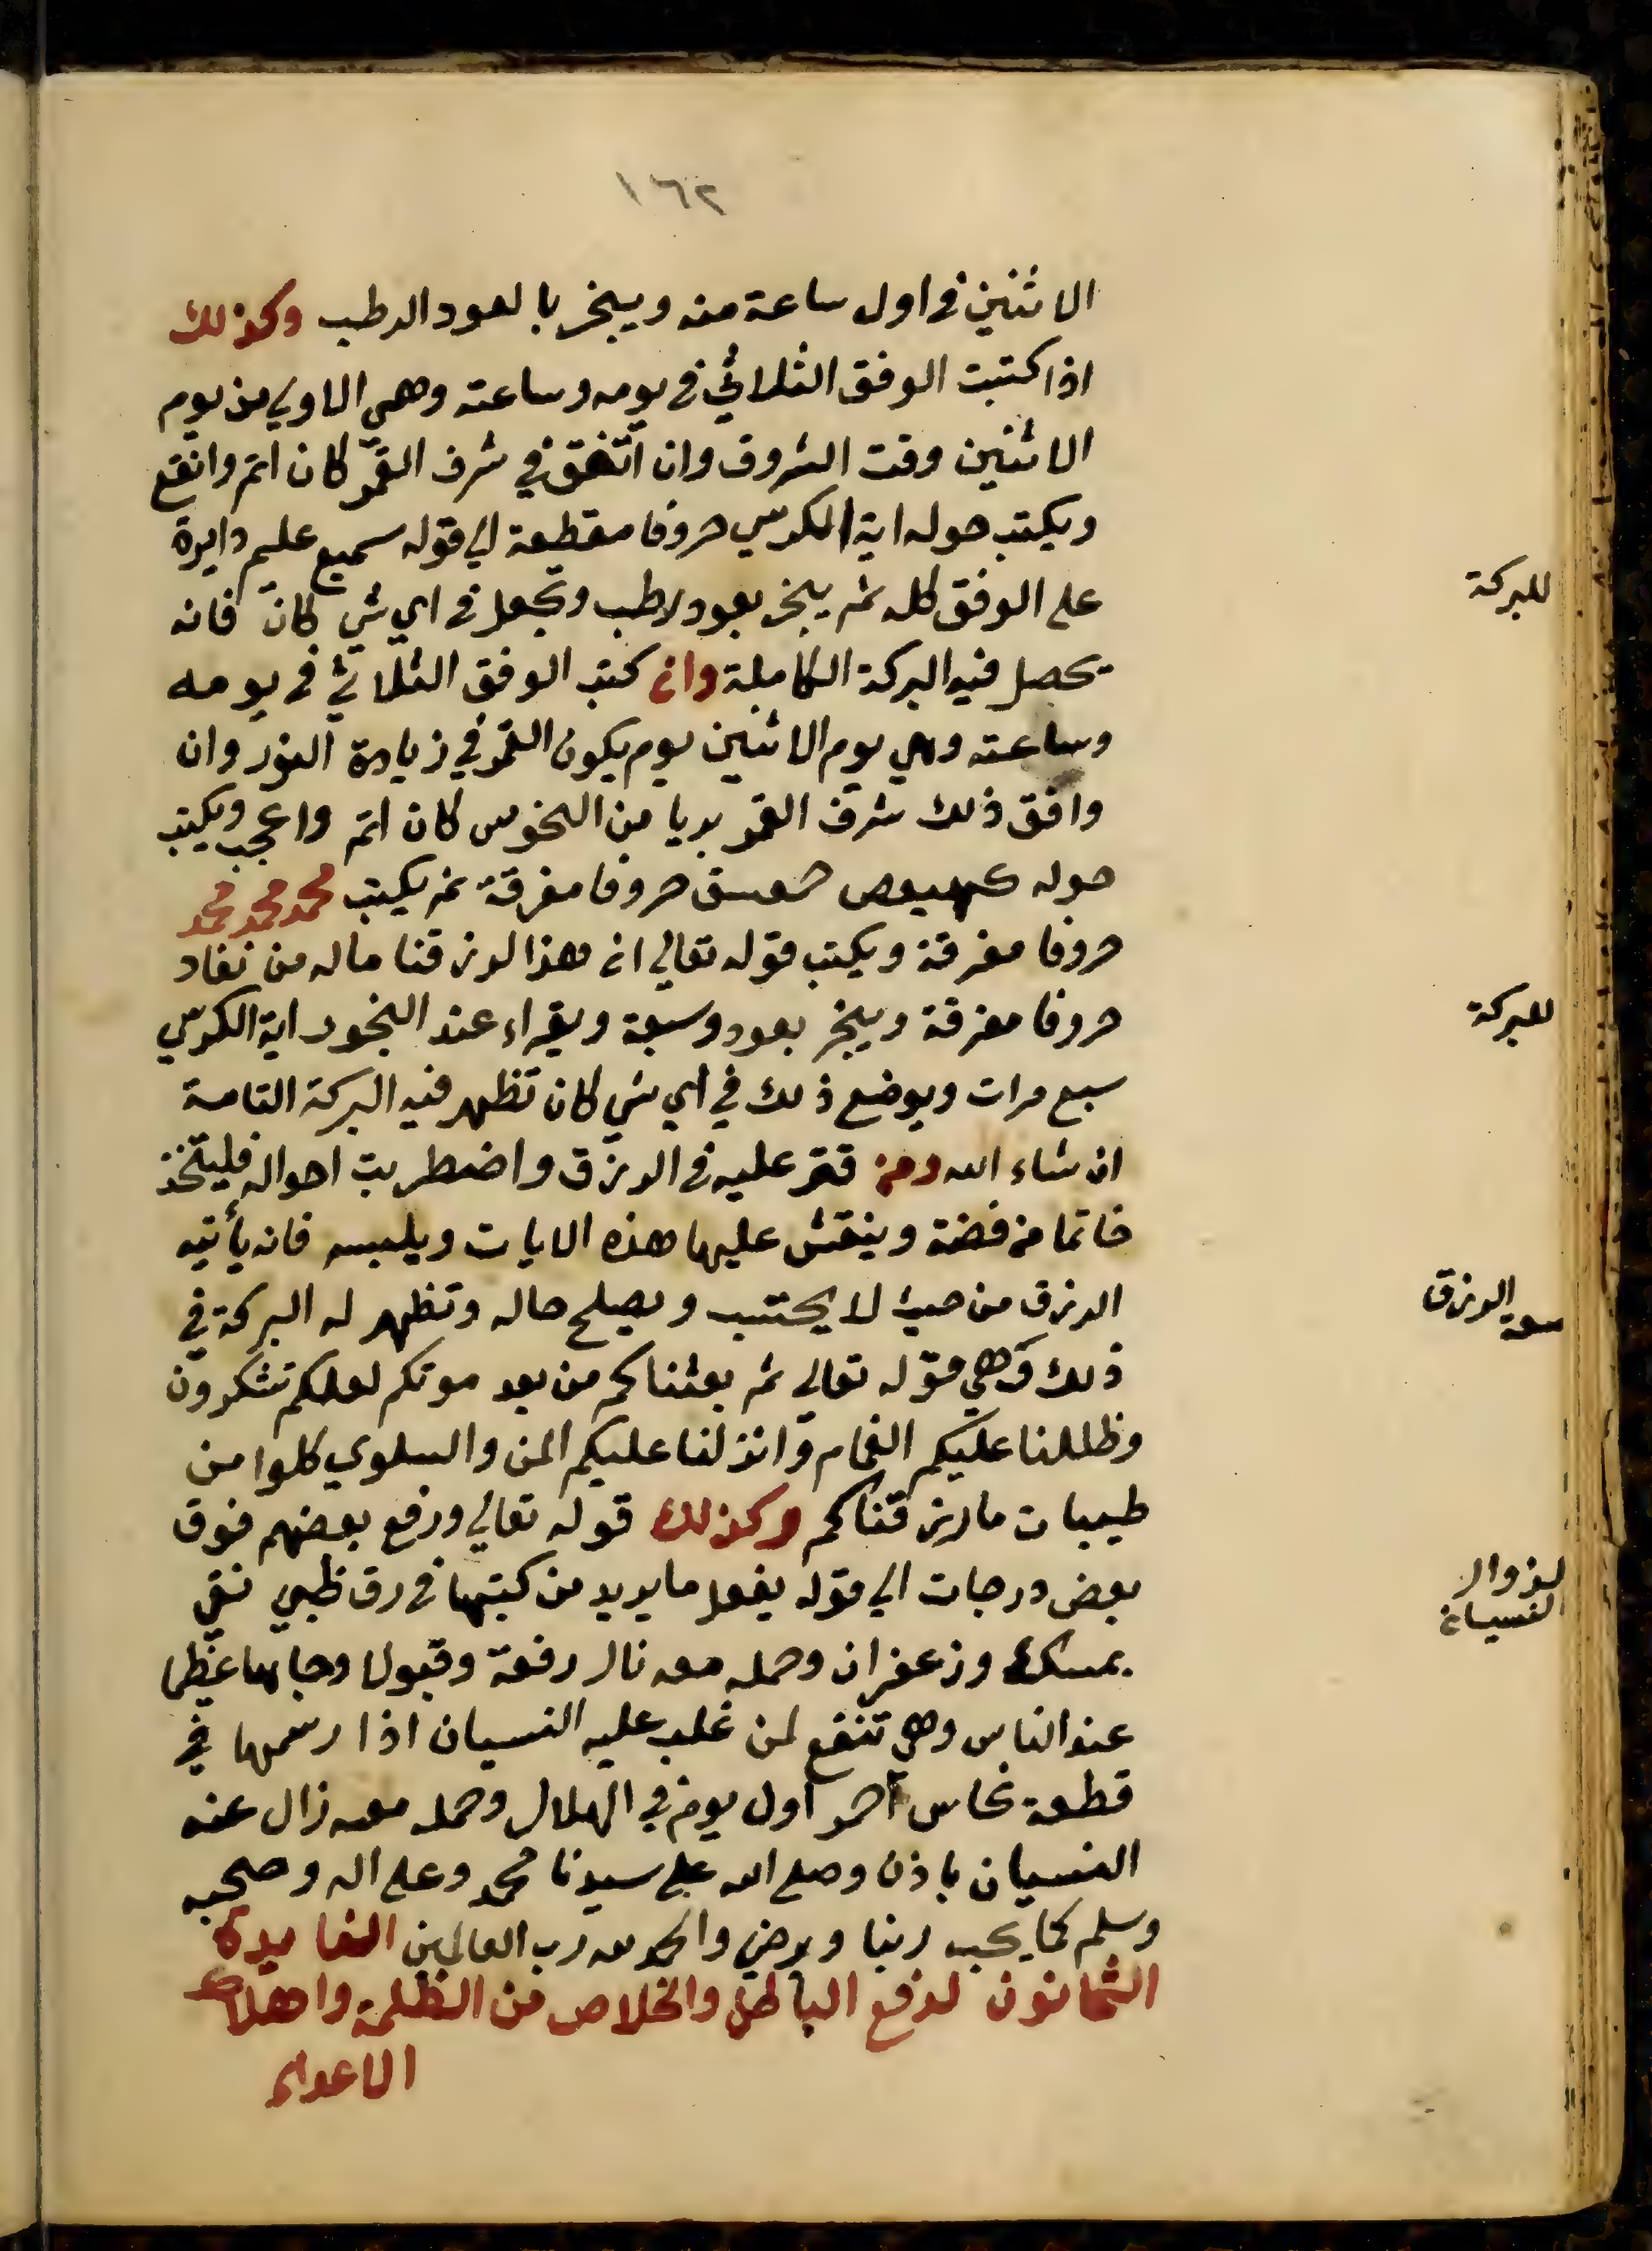 ١٦٢
الاثنين في اول ساعة منه ويبخر بالعود الرطب وكذلك
اذا كتبت الوفق الثلاثي في يومه وساعته وهي الاولي من يوم
الاثنين وقت الشروق وان اتفق في شرف القمر كان اتم وانفع
ويكتب حوله اية الكرسي حروفا مقطعة الي قوله سميع عليم دايرة
علي الوفق كله ثم يبخر بعود رطب وتجعل في اي شي كان فانه
يحصل فيه البركة الكاملة وان كتب الوفق الثلاثي في يومه
وساعته وهي يوم الاثنين يوم يكون القمر في زيادة النور وان
وافق ذلك شرف القمر بريا من النحوس كان اتم واعجب ويكتب
حوله كهيعص حمعسق حروفا مفرقة ثم يكتب محمد محمد محمد
حروفا مفرقة ويكتب قوله تعالي ان هذا لرزقنا ماله من نفاد
حروفا مفرقة ويبخر بعود وسبعة ويقراء عند البخور اية الكرسي
سبع مرات ويوضع ذلك في اي شي كان تظهر فيه البركة التامة
ان شاء الله ومن قتر عليه في الرزق واضطربت احواله فليتخذ
خاتما من فضة وينقش عليها هذه الايات ويلبسه فانه يأتيه
الرزق من حيث لا يحتسب ويصلح حاله وتظهر له البركة في
ذلك وهي قوله تعالي ثم بعثناكم من بعد موتكم لعلكم تشكرون
وظللنا عليكم الغمام وانزلنا عليكم المن والسلوي كلوا من
طيبات ما رزقناكم وكذلك قوله تعالي ورفع بعضهم فوق
بعض درجات الي قوله يفعل ما يريد من كتبها في رق ظبي نقي
بمسك وزعفران وحمله معه نال رفعة وقبولا وجاها عظيما
عند الناس وهي تنفع لمن غلب عليه النسيان اذا رسمها في
قطعة نحاس احمر اول يوم في الهلال وحمله معه زال عنه
النسيان باذن وصلي الله علي سيدنا محمد وعلي اله وصحبه
وسلم كما يحب ربنا ويرضي والحمد لله رب العالمين الفايدة
الثمانون لدفع الباطل والخلاص من الظلمة واهلاك
الاعداء
للبركة
للبركة
سعة الرزق
لزوال
النسيان